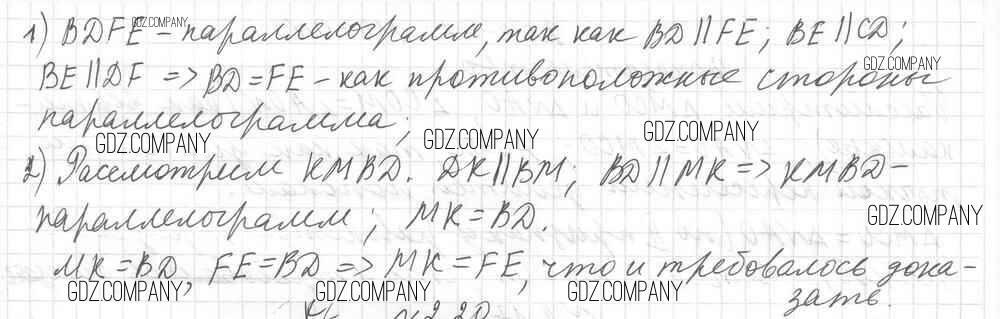 1) BDFE – параллелограмм, так как BD || FE; BE || CD;
BE || DF => BD = FE – как противоположные стороны
параллелограмма;
2) Рассмотрим KMBD. DK || BM; BD || MK => KMBD –
параллелограмм; MK = BD.
MK = BD, FE = BD => MK = FE, что и требовалось дока-
зать.
GDZ.COMPANY
GDZ.COMPANY
GDZ.COMPANY
GDZ.COMPANY
GDZ.COMPANY
GDZ.COMPANY
GDZ.COMPANY
GDZ.COMPANY
GDZ.COMPANY